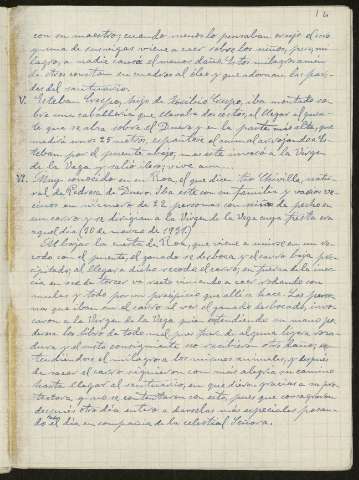 14
con su maestro; cuando menos lo pensaban crujió el
y una de sus vigas viene a caer sobre los niños, pero, mi-
lagro, a nadie causó el menor daño. Estos milagros
de otros constan en cuadros al óleo y que adornan las pare-
des del santuario.
V. Esteban Crespo, hijo de Crespo, iba montado so-
bre una caballería que llevaba dos cestos, al llegar al puen-
te que se alza sobre el Duero y en la parte más alta, que
medirá unos 25 metros, espántase el animal arrojando a Es-
teban por el puente abajo, mas este invocó a la Virgen
de la Vega y salió ileso; vive aun.
VI. Muy conocido es en Roa, el que dice tío Chivilla, natu-
ral de Pedrosa de Duero. Iba este con su familia y varios ve-
cinos en número de 22 personas con niños de pecho en
un carro y se dirigían a la Virgen de la Vega cuya fiesta era
aquel día (20 de marzo de 1931)
Al bajar la cuesta de Roa, que viene a unirse en un re-
codo con el puente, el ganado se desboca y el carro baja pre-
cipitado, al llegar a dicho recodo el carro, en fuerza de la iner-
cia en vez de torcer va recto viniendo a caer rodando con
mulas y todo por un precipicio que allí se hace. Las perso-
nas que iban en el carro al ver el ganado desbocado, invo-
caron a la Virgen de la Vega quien extendiendo su mano po-
derosa los libró de todo mal, pues fuera de alguna ligera roza-
dura y el susto consiguiente no recibieron otro daño; ex-
tendiéndose el milagro a los mismos animales, y después
de sacar el carro siguieron con más alegría su camino
hasta llegar al santuario, en que dieron gracias a su pro-
tectora, y no se contentaron con esto, pues que consagraron
después otro día entero a dárselas más especiales pasan-
do todo el día en compañía de la celestial Señora.